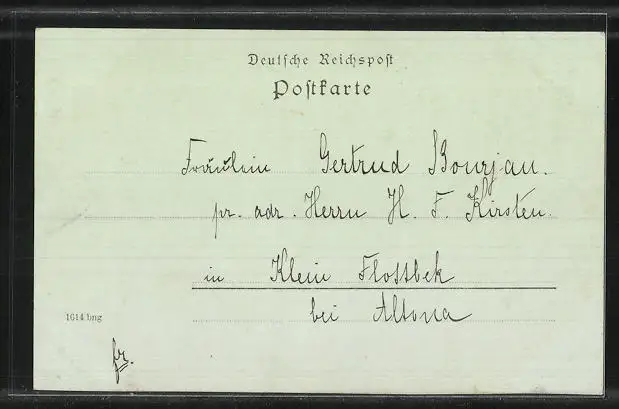 Deutsche Reichspost
Postkarte
Fräulein Gertrud Bourjau.
pr. adr. Herrn H. F. Kirsten.
in Klein Flottbek
bei Altona
1614 bng
fr.